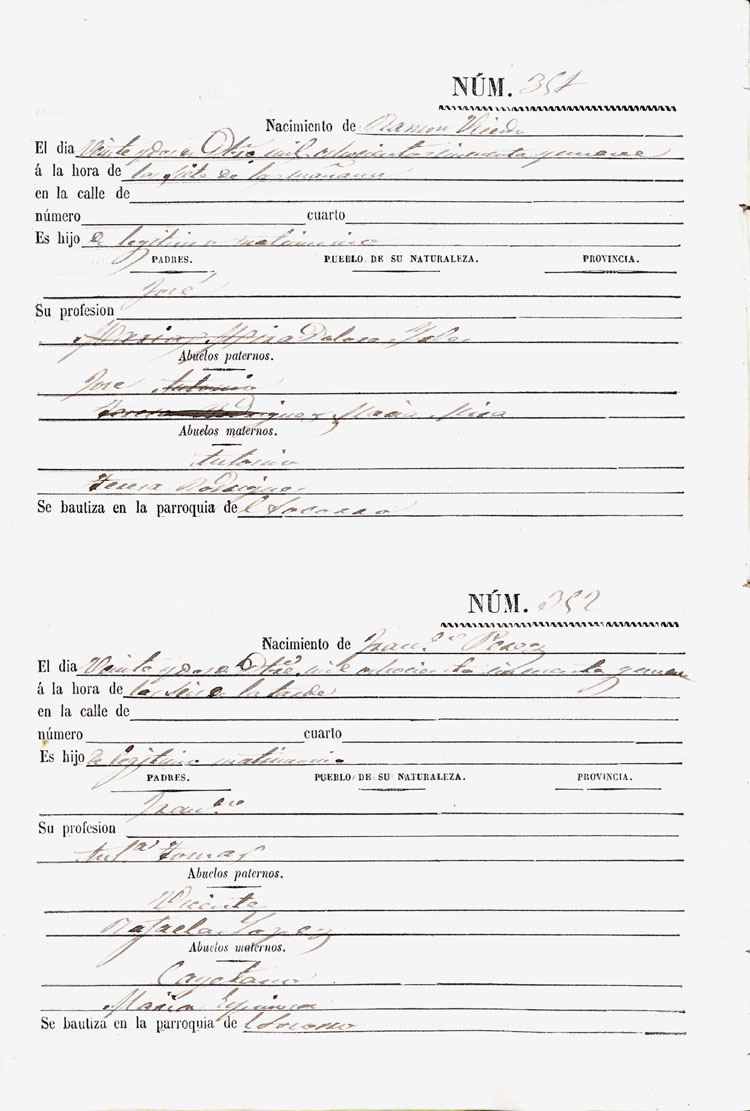 NÚM. 351
Nacimiento de Ramon Vicedo
El dia Veinte y dos de Otbre mil ochocientos cincuenta y nueve
á la hora de las siete de la mañana
en la calle de
número cuarto
Es hijo de legitimo matrimonio
PADRES. PUEBLO DE SU NATURALEZA. PROVINCIA.
José
Su profesion
Maria Mira Dolores
Abuelos paternos.
José Antonio
Teresa Rodriguez Maria Mira
Abuelos maternos.
Antonio
Teresa Rodriguez
Se bautiza en la parroquia de el Socorro
NÚM. 352
Nacimiento de Franco Perez
El dia Veinte y dos de Otbre mil ochocientos cincuenta y nueve
á la hora de las seis de la tarde
en la calle de
número cuarto
Es hijo de legitimo matrimonio
PADRES. PUEBLO DE SU NATURALEZA. PROVINCIA.
Franco
Su profesion
Anta Tomas
Abuelos paternos.
Vicente
Rafaela Lopez
Abuelos maternos.
Cayetano
Maria Espinosa
Se bautiza en la parroquia de el Socorro